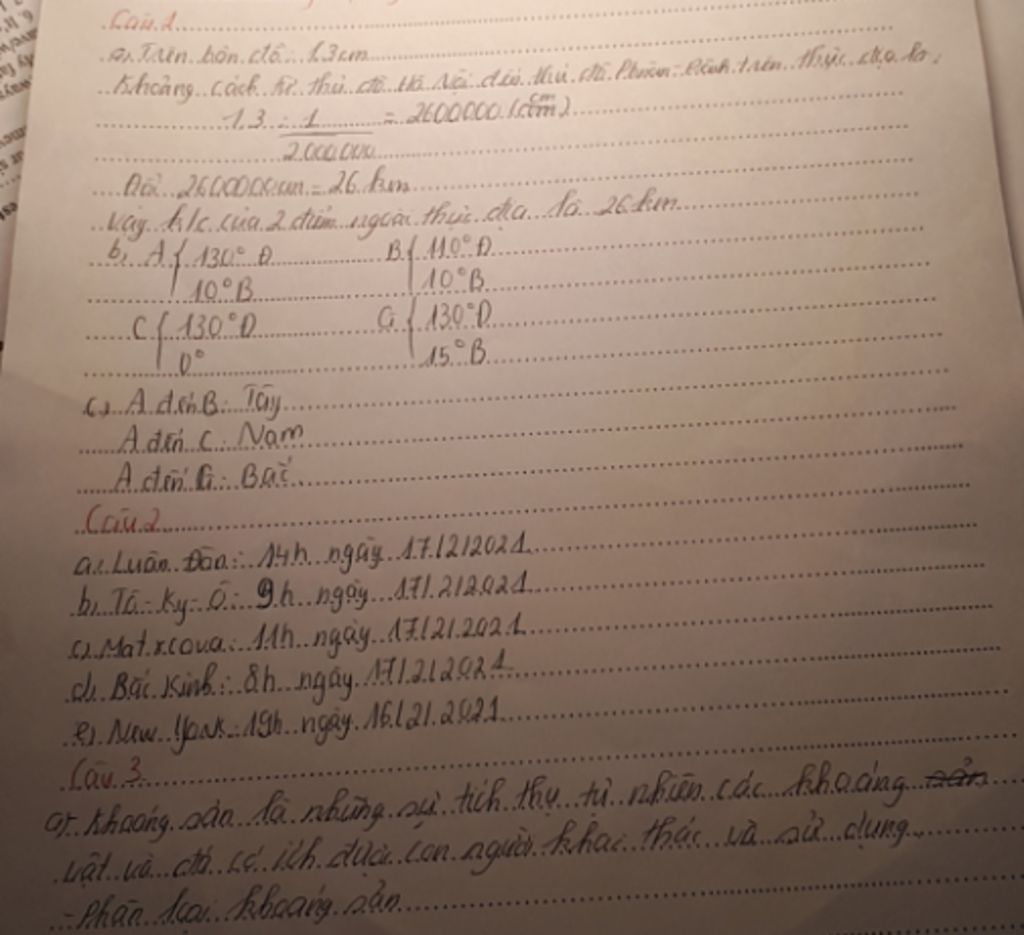 Câu 1
a, Trên bản đồ: 1,3cm
Khoảng cách từ thủ đô Hà Nội đến thủ đô Phnôm-Pênh trên thực địa là:
1,3 : 1 / 2.000.000 = 2600000 (cm)
Đổi 2600000cm = 26 km
Vậy k/c của 2 điểm ngoài thực địa là 26km
b, A { 130° Đ B { 110° Đ
10° B 10° B
C { 130° Đ G { 130° Đ
0° 15° B
c, A đến B: Tây
A đến C: Nam
A đến G: Bắc
Câu 2
a, Luân Đôn: 14h ngày 17/2/2021
b, Tô-Ky-Ô: 9h ngày 17/2/2021
c, Matxcova: 11h ngày 17/2/2021
d, Bắc Kinh: 8h ngày 17/2/2021
e, New York: 19h ngày 16/2/2021
Câu 3
a, Khoáng sản là những sự tích thụ tự nhiên các khoáng
vật và đá có ích được con người khai thác và sử dụng
- Phân loại khoáng sản